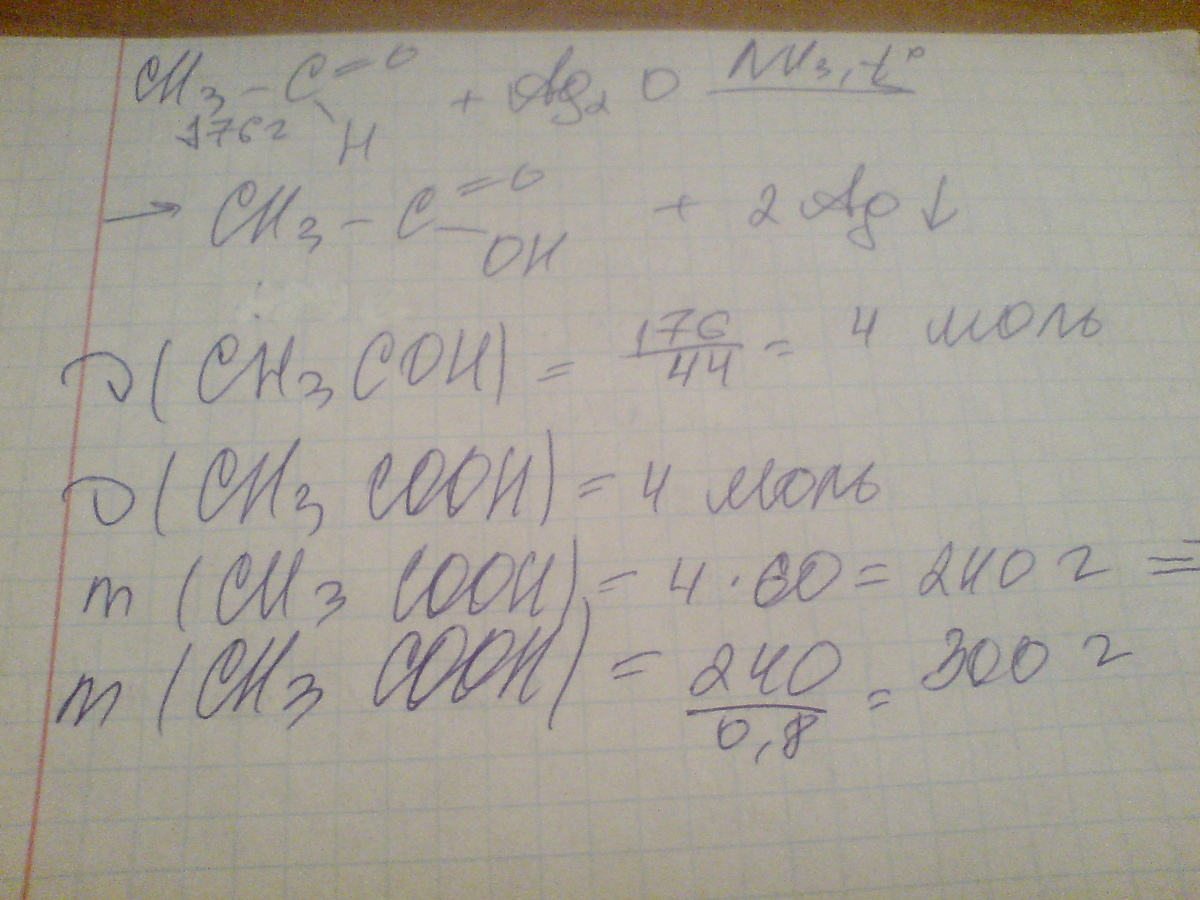 CH₃ – C =O + Ag₂O NH₃, t°
176г H
→ CH₃ – C =O + 2Ag↓
OH
ν(CH₃COH) = 176/44 = 4 моль
ν(CH₃COOH) = 4 моль
m(CH₃COOH) = 4·60 = 240 г =
m(CH₃COOH) = 240/0,8 = 300 г